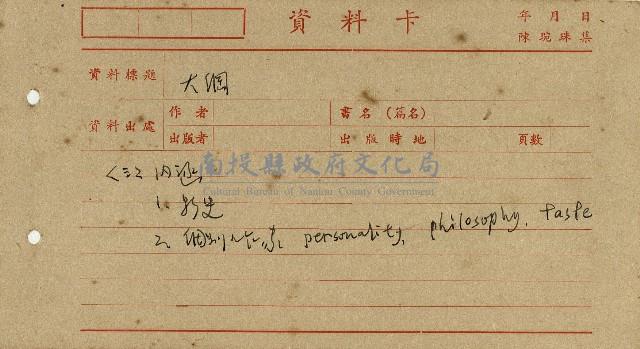 資料卡
年 月 日
陳琬珠集
資料標題
大綱
資料出處
作者
書名(篇名)
出版者
出版時地
頁數
南投縣政府文化局
Cultural Bureau of Nantou County Government
<三> 內涵
1. 歷史
2. 個別 personality, philosophy, taste